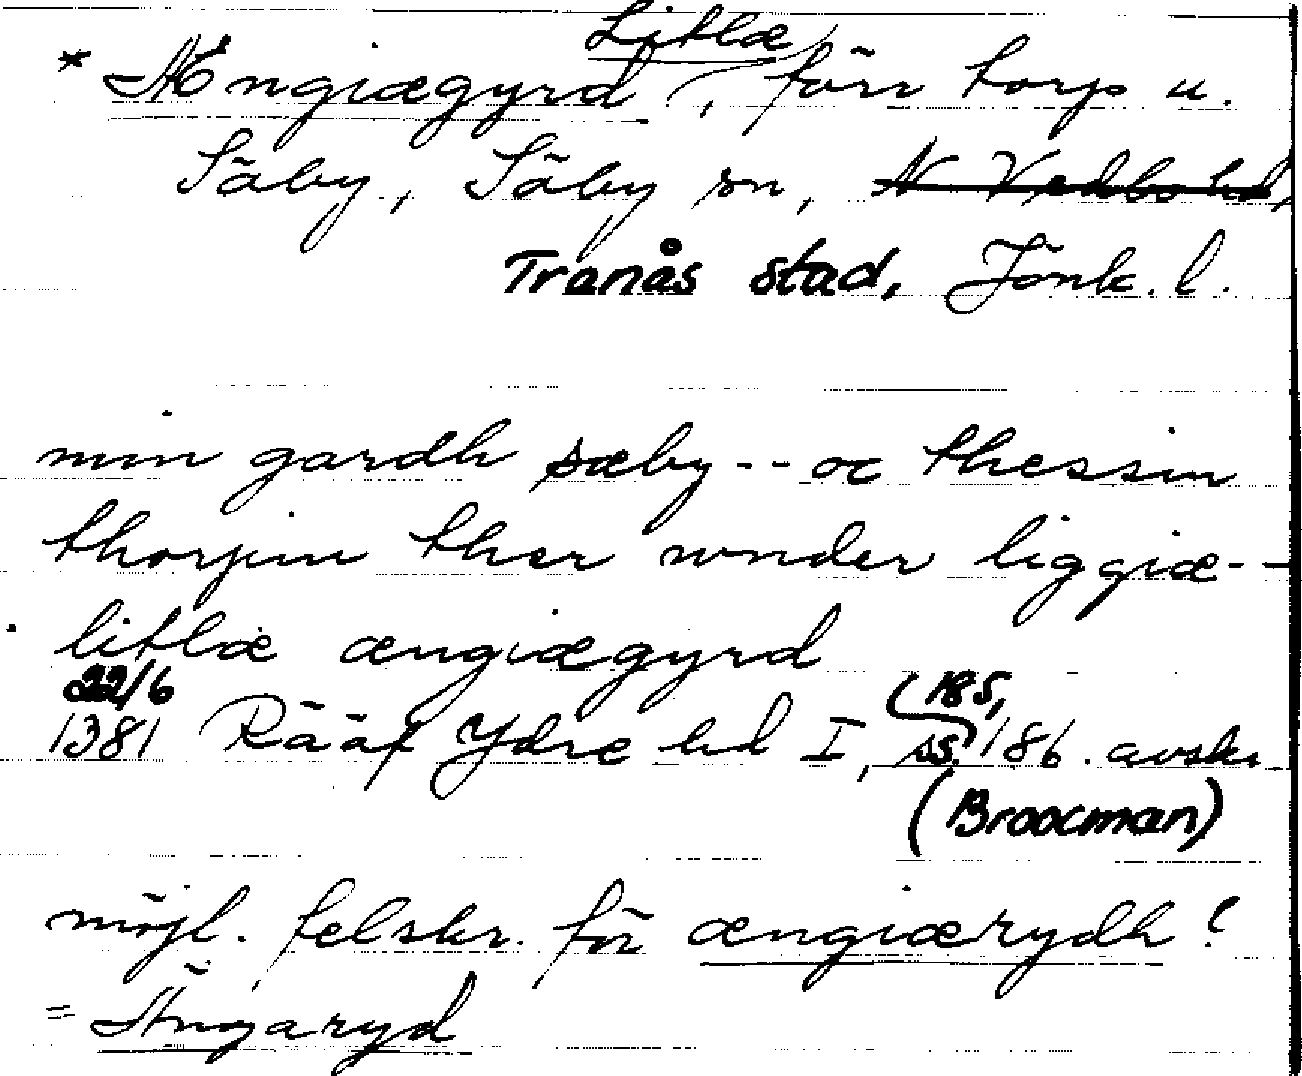 Litlæ
* Ængiægyrd, förr torp u.
Säby, Säby sn, N Vedbo hd,
Tranås stad, Jönk. l.
min gardh sæby -- oc thessin
thorpin ther wnder liggiæ --
litlæ ængiægyrd
22/6 185,
1381 Rääf Ydre hd I, ss. 186. avskr.
(Broocman)
möjl. felskr. för ængiærydh?
= Ängaryd